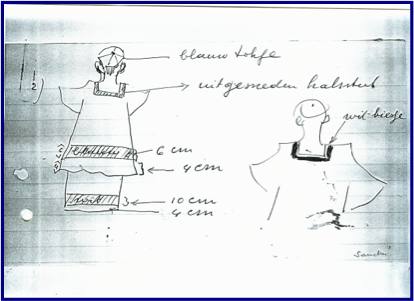 blauw tokje
uitgesneden halsstuk
wit biesje
6 cm
4 cm
10 cm
4 cm